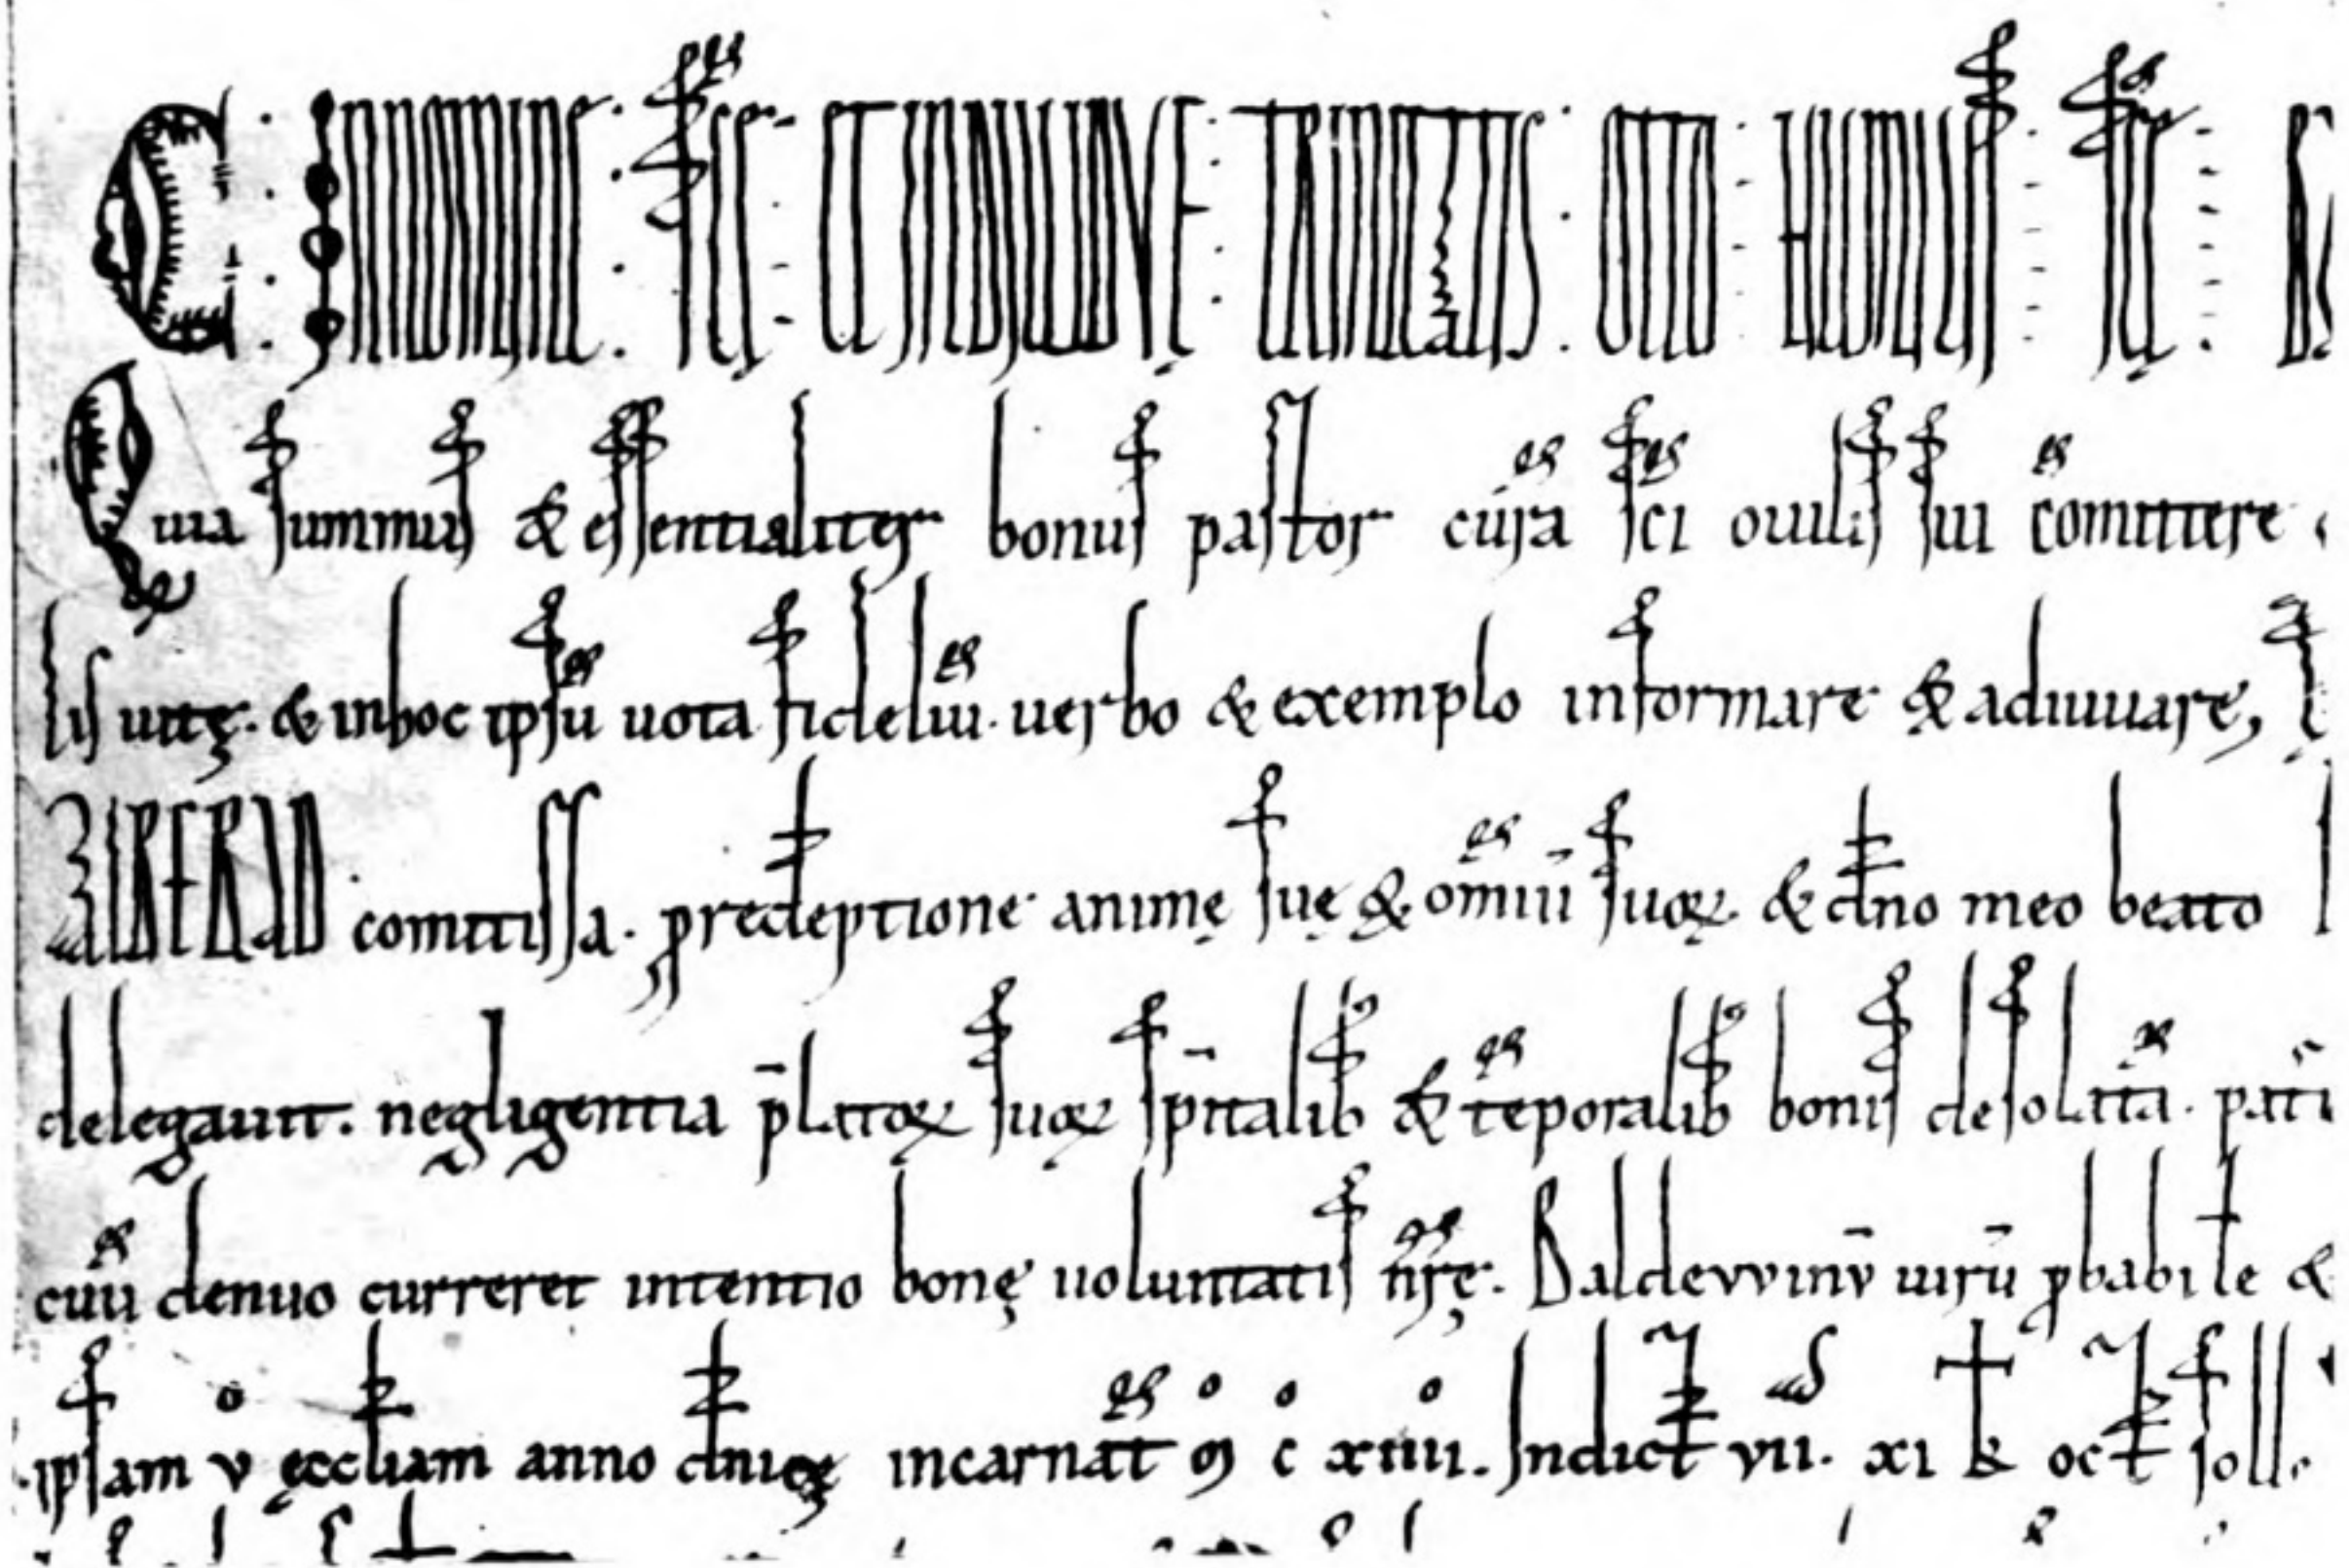 C INNOMINE S̅CE ET INDIVIDVE TRINITATIS OTTO HUMILIS S̅CE
Quia summus & essentialiter bonus pastor cura̅ s̅ci ouilis sui co̅mittere
lis uitę. & in hoc ipsu̅ uota fideliu̅. uerbo & exemplo informare & adiuuare,
ALBERAD comitissa. p redeptione animę suę & om̅iu̅ suoꝝ. & d̅no meo beato
delegauit. negligentia p̅latoꝝ suoꝝ sp̅italib & te̅poralib bonis desolata̅. pati
cuu̅ denuo curreret intentio bonę uoluntatis n̅rę. Baldevvinv̅ uiru̅ ꝓbabile̅ &
ipsam v ęccl̅iam anno d̅nicę incarnat̅ ꝏ c xiiii. Indict̅ vii. xi k̅ oct̅ soll